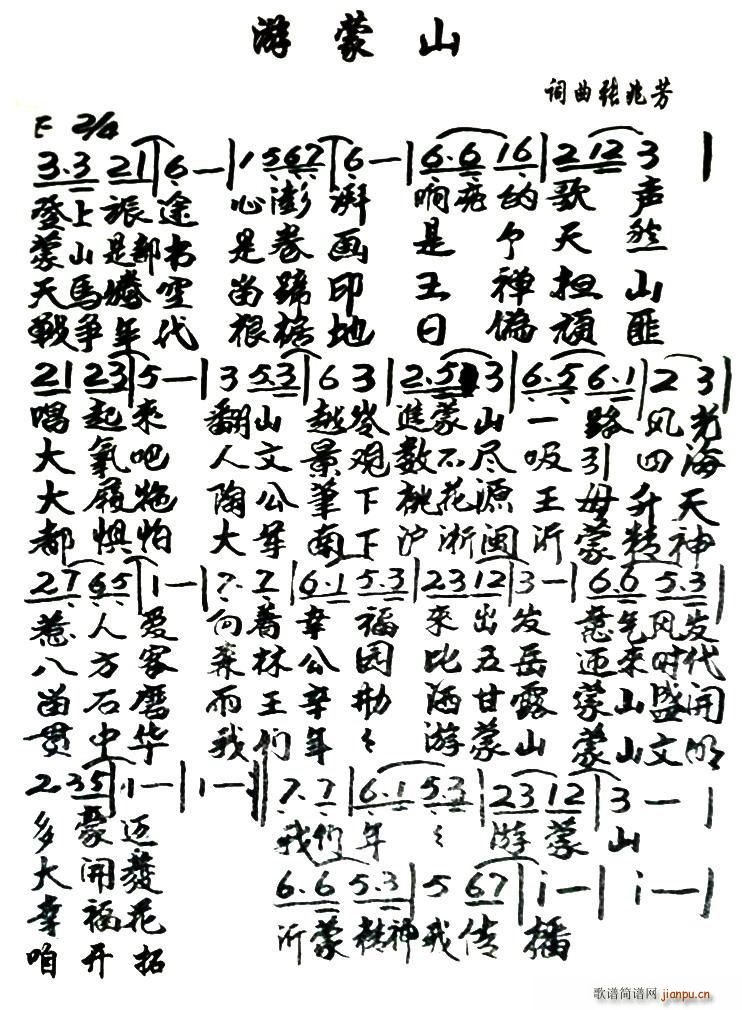 游蒙山
词曲张兆芳
F 2/4
3·3 21 | 6 — | 1 567 | 6 — | 6·6 16 | 2 12 | 3 |
登上旅途 心澎湃 响亮的歌声
蒙山是部书 是卷画 是个天然
天马腾空 留蹄印 王禅担山
战争年代 根据地 日伪顽匪
21 23 | 5 — | 3 5·3 | 6 3 | 2·5 3 | 6·5 6·1 | 2 3 |
唱起来 翻山越岭进蒙山一路风光
大氧吧 人文景观数不尽吸引四海
大 拖 陶公笔下桃花源王母升天
都惧怕 大军南下沪浙闽沂蒙精神
27 65 | 1 — | 7·7 | 6·1 5·3 | 23 12 | 3 — | 6·6 5·3 |
惹人爱 向着幸福来出发 意气风发
八方客 森林公园比五岳 迎来时代
留石磨 雨王 洒甘露 蒙山盛开
贯中华 我们年々游蒙山 蒙山文明
2·35 | 1 — | 1 — | 7·7 | 6·1 5·3 | 23 12 | 3 — |
多豪迈 我们年々游蒙山
大开发
幸福花 6·6 5·3 | 5 67 | i — | i — |
咱开拓 沂蒙精神我传播
歌谱简谱网
jianpu.cn